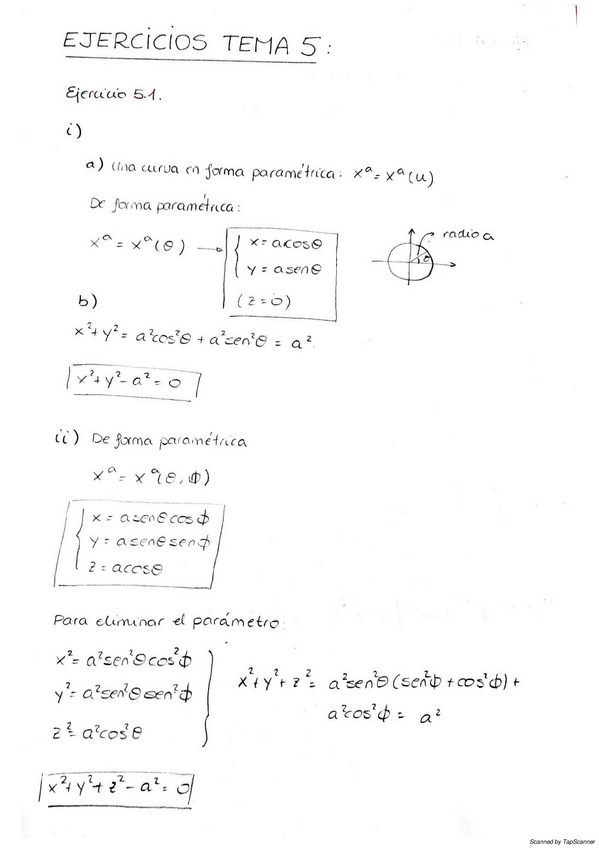 EJERCICIOS TEMA 5:
Ejercicio 5.1.
i)
a) Una curva en forma paramétrica: xᵃ = xᵃ(u)
De forma paramétrica:
xᵃ = xᵃ(θ) → { x = acosθ
y = asenθ
(z = 0)
radio a
θ
b)
x² + y² = a²cos²θ + a²sen²θ = a².
x² + y² - a² = 0
ii) De forma paramétrica
xᵃ = xᵃ(θ, ϕ)
{ x = asenθcosϕ
y = asenθsenϕ
z = acosθ
Para eliminar el parámetro:
x² = a²sen²θcos²ϕ
y² = a²sen²θsen²ϕ
z² = a²cos²θ
x² + y² + z² = a²sen²θ(sen²ϕ + cos²ϕ) +
a²cos²ϕ = a²
x² + y² + z² - a² = 0
Scanned by TapScanner